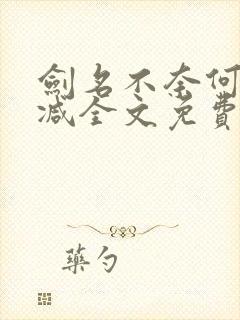 劍名不奈何
减全文免費
藥勺